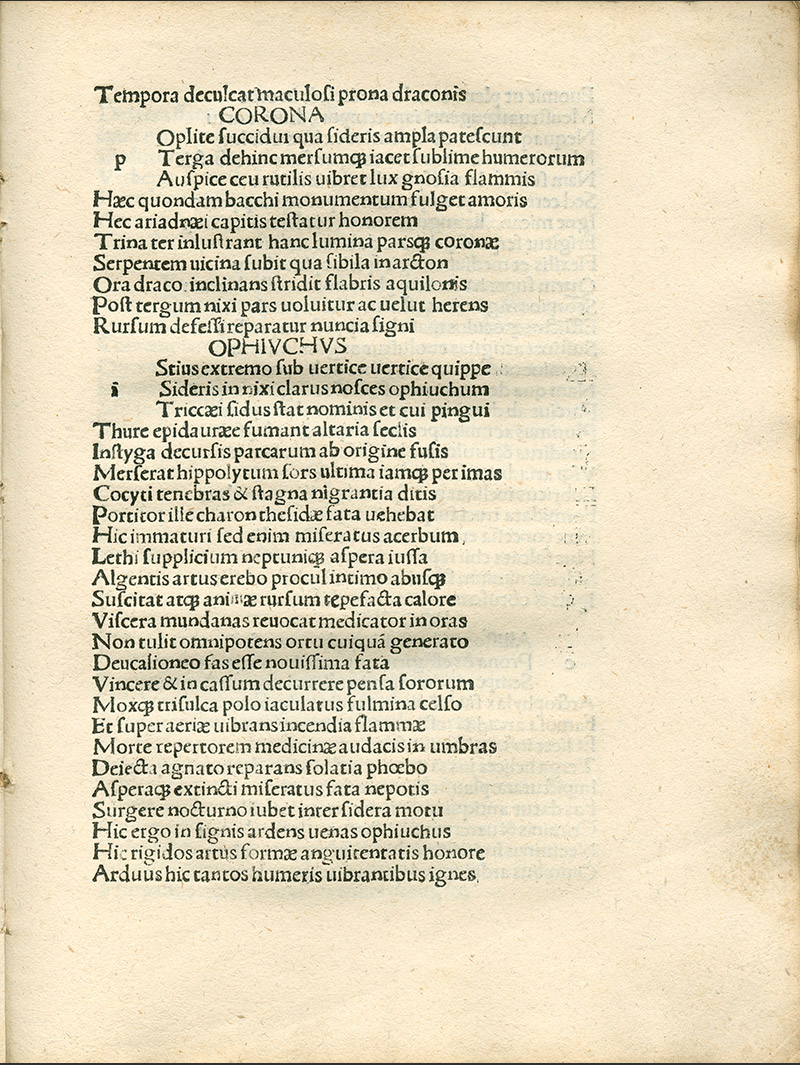 Tempora deculcat maculoſi prona draconis
CORONA
Oplite ſuccidui qua ſideris ampla pateſcunt
p Terga dehinc merſumqꝫ iacet ſublime humerorum
Auſpice ceu rutilis uibret lux gnoſia flammis
Hæc quondam bacchi monumentum fulget amoris
Hec ariadnæi capitis teſtatur honorem
Trina ter inluſtrant hanc lumina parsqꝫ coronæ
Serpentem uicina ſubit qua ſibila in arcton
Ora draco inclinans ſtridit flabris aquilonis
Poſt tergum nixi pars uoluitur ac uelut herens
Rurſum defeſſi reparatur nuncia ſigni
OPHIVCHVS
Stius extremo ſub uertice uertice quippe
ī Sideris in nixi clarus noſces ophiuchum
Triccæi ſidus ſtat nominis et cui pingui
Thure epidauræe fumant altaria ſeclis
In ſtyga decurſis parcarum ab origine fuſis
Merſerat hippolytum ſors ultima iamqꝫ per imas
Cocyti tenebras & ſtagna nigrantia ditis
Portitor ille charon theſidæ fata uehebat
Hic immaturi ſed enim miſeratus acerbum
Lethi ſupplicium neptuniqꝫ aſpera iuſſa
Algentis artus erebo procul intimo abuſqꝫ
Suſcitat atqꝫ animæ rurſum tepefacta calore
Viſcera mundanas reuocat medicator in oras
Non tulit omnipotens ortu cuiquā generato
Deucalioneo fas eſſe nouiſſima fata
Vincere & in caſſum decurrere penſa ſororum
Moxqꝫ triſulca polo iaculatus fulmina celſo
Et ſuper aeriæ uibrans incendia flammæ
Morte repertorem medicinæ audacis in umbras
Deiecta agnato reparans ſolatia phœbo
Aſperaqꝫ extincti miſeratus fata nepotis
Surgere nocturno iubet inter ſidera motu
Hic ergo in ſignis ardens uenas ophiuchus
Hic rigidos artus formæ anguitentatis honore
Arduus hic tantos humeris uibrantibus ignes.